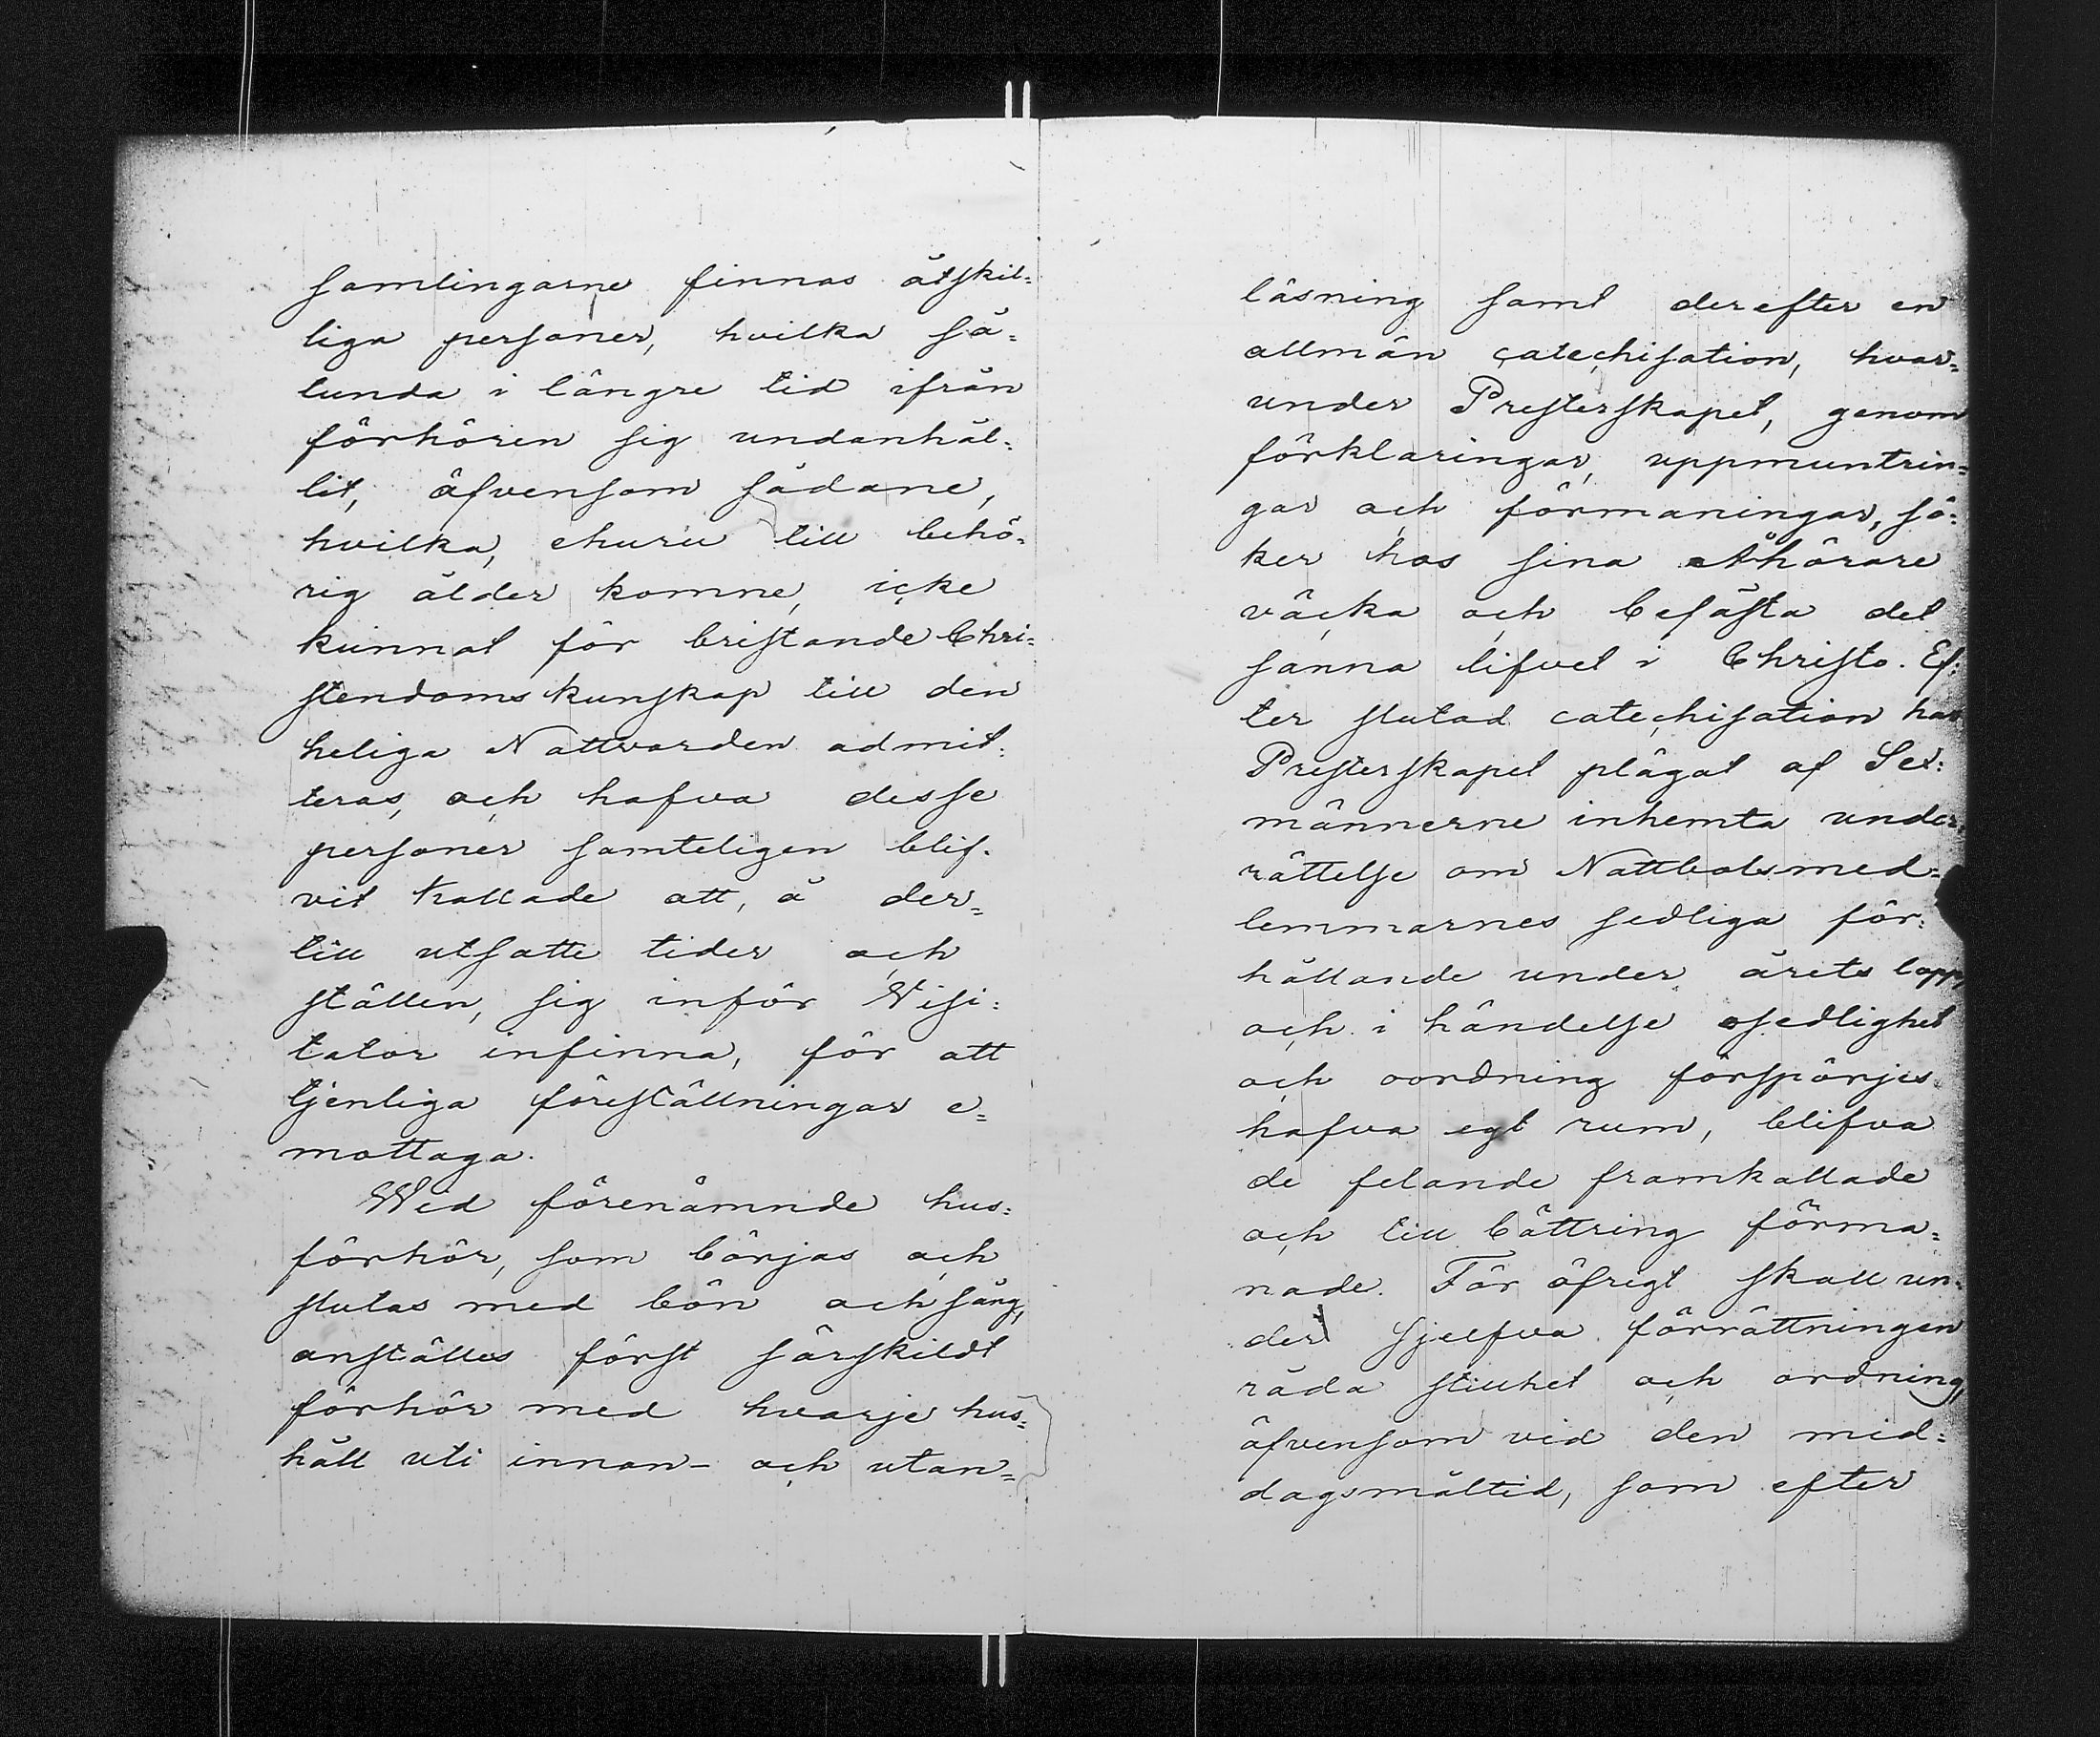 samlingarne finnas åtskil=
liga personer, hvilka så=
lunda i längre tid ifrån
förhören sig undanhål=
lit, äfvensom sådane,
hvilka, ehuru till behö=
rig ålder komne, icke
kunnat för bristande Chri=
stendomskunskap till den
heliga Nattvarden admit=
teras, och hafva desse
personer samteligen blif=
vit kallade att, å der=
till utsatte tider och
ställen, sig inför Visi=
tator infinna, för att
tjenliga föreställningar e=
mottaga.
Wid förenämnde hus=
förhör, som börjas och
slutas med bön och sång,
anställes först särskildt
förhör med hvarje hus=
håll uti innan- och utan=
läsning samt derefter en
allmän catechisation, hvar=
under Presterskapet, genom
förklaringar, uppmuntrin=
gar och förmaningar, sö=
ker hos sina Åhörare
väcka och befästa det
sanna lifvet i Christo. Ef=
ter slutad catechisation har
Presterskapet plägat af Sex=
männerne inhemta under=
rättelse om Nattbolsmed=
lemmarnes sedliga för=
hållande under årets lopp,
och i händelse osedlighet
och oordning försporjes
hafva egt rum, blifva
de felande framkallade
och till bättring förma=
nade. För öfrigt skall un=
der sjelfva förrättningen
råda stillhet och ordning,
äfvensom vid den mid=
dagsmåltid, som efter